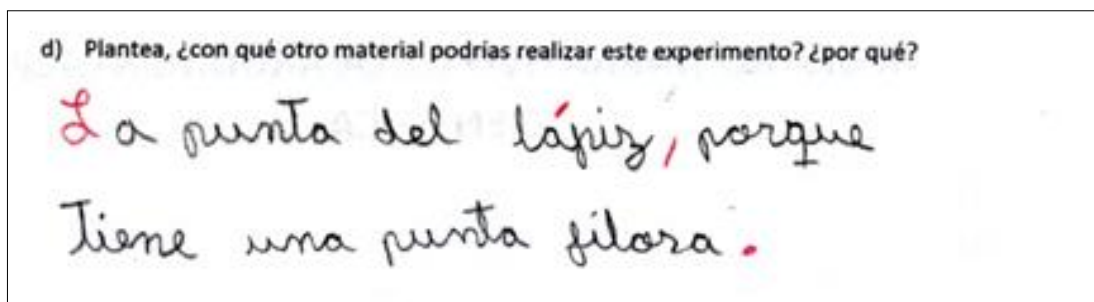 d) Plantea, ¿con qué otro material podrías realizar este experimento? ¿por qué?
La punta del lápiz, porque
Tiene una punta filosa.